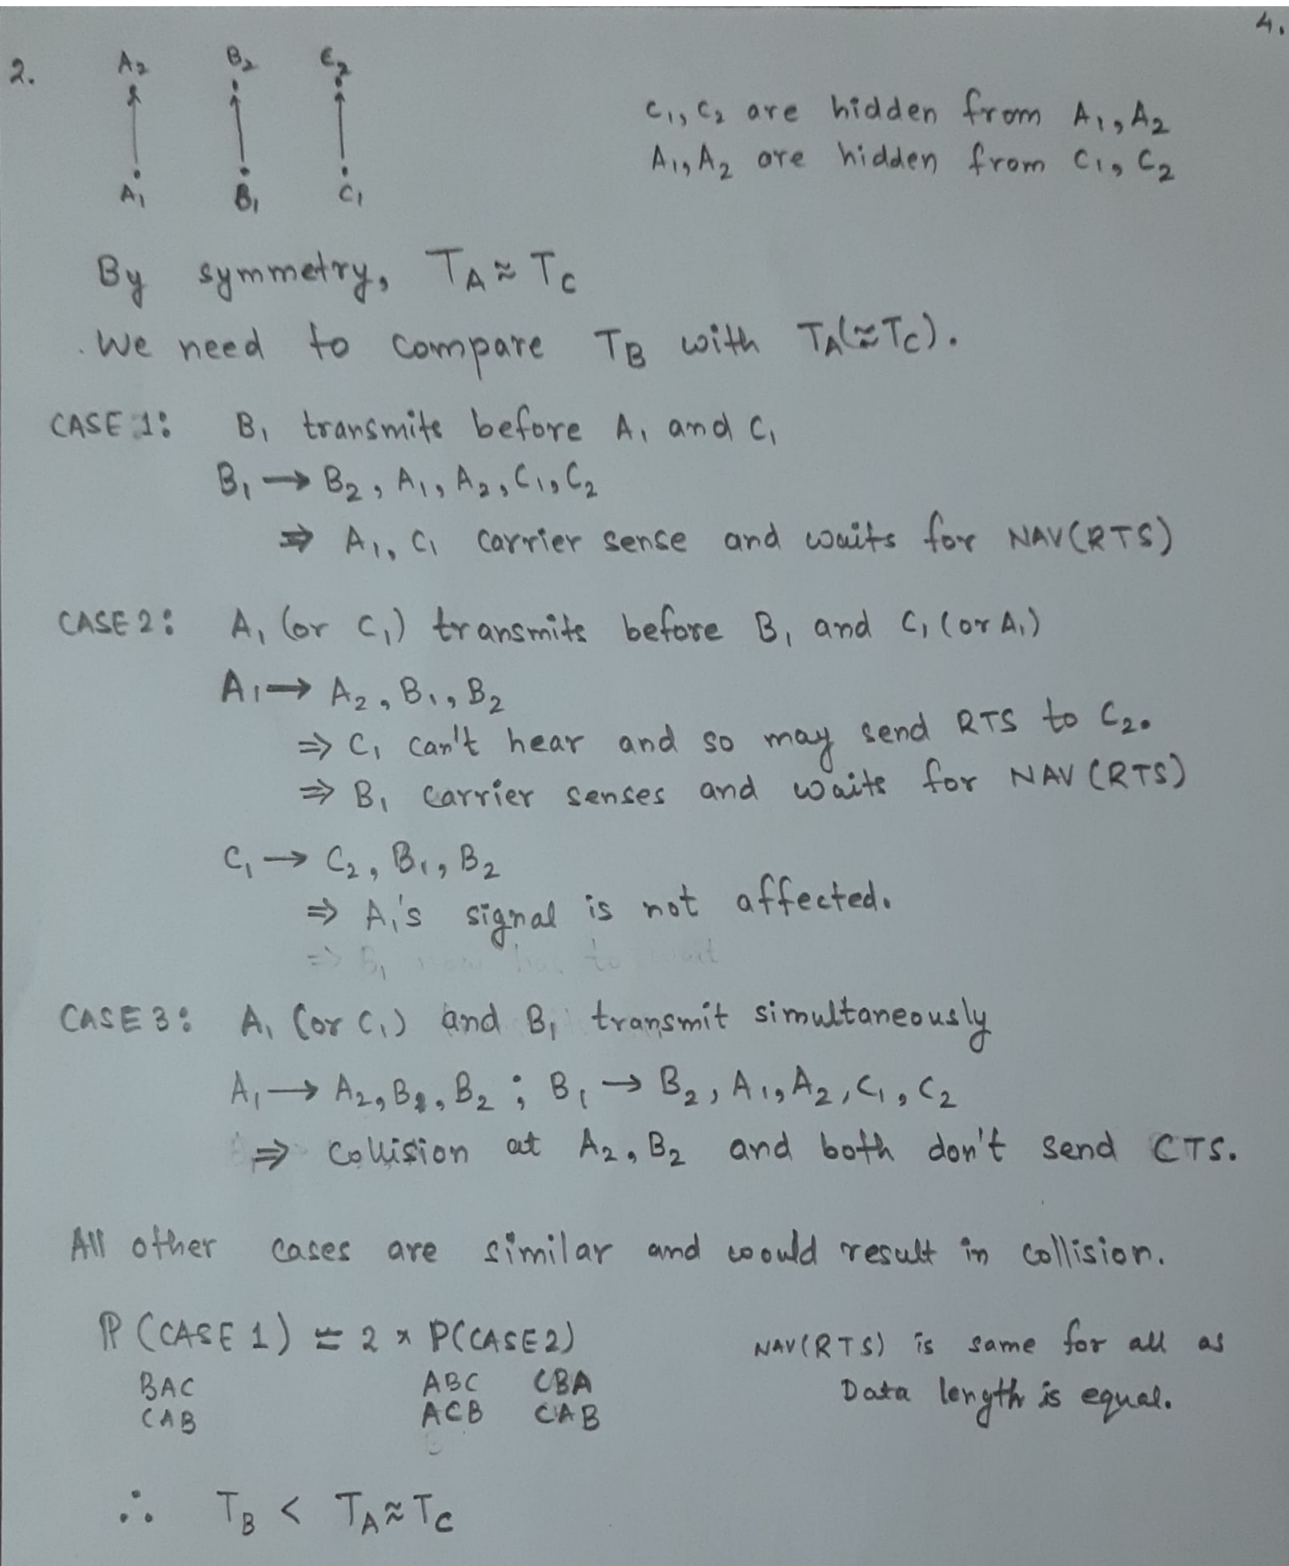 4.
2.
A₂ B₂ C₂
A₁ B₁ C₁
C₁, C₂ are hidden from A₁, A₂
A₁, A₂ are hidden from C₁, C₂
By symmetry, T_A ≈ T_C
We need to compare T_B with T_A(≈T_C).
CASE 1: B₁ transmits before A₁ and C₁
B₁ → B₂, A₁, A₂, C₁, C₂
⇒ A₁, C₁ carrier sense and waits for NAV(RTS)
CASE 2: A₁ (or C₁) transmits before B₁ and C₁ (or A₁)
A₁ → A₂, B₁, B₂
⇒ C₁ can't hear and so may send RTS to C₂.
⇒ B₁ carrier senses and waits for NAV (RTS)
C₁ → C₂, B₁, B₂
⇒ A₁'s signal is not affected.
CASE 3: A₁ (or C₁) and B₁ transmit simultaneously
A₁ → A₂, B₁, B₂ ; B₁ → B₂, A₁, A₂, C₁, C₂
⇒ Collision at A₂, B₂ and both don't send CTS.
All other cases are similar and would result in collision.
P (CASE 1) = 2 x P(CASE 2)
BAC ABC CBA
CAB ACB CAB
NAV(RTS) is same for all as
Data length is equal.
∴ T_B < T_A ≈ T_C